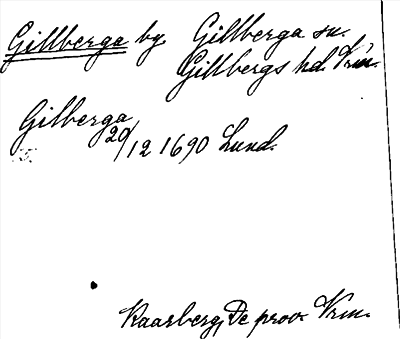 Gillberga by. Gillberga sn.
Gillbergs hd. Vrm.
Gilberga
20/12 1690 Lund.
Kaarberg, De prov. Vrm.